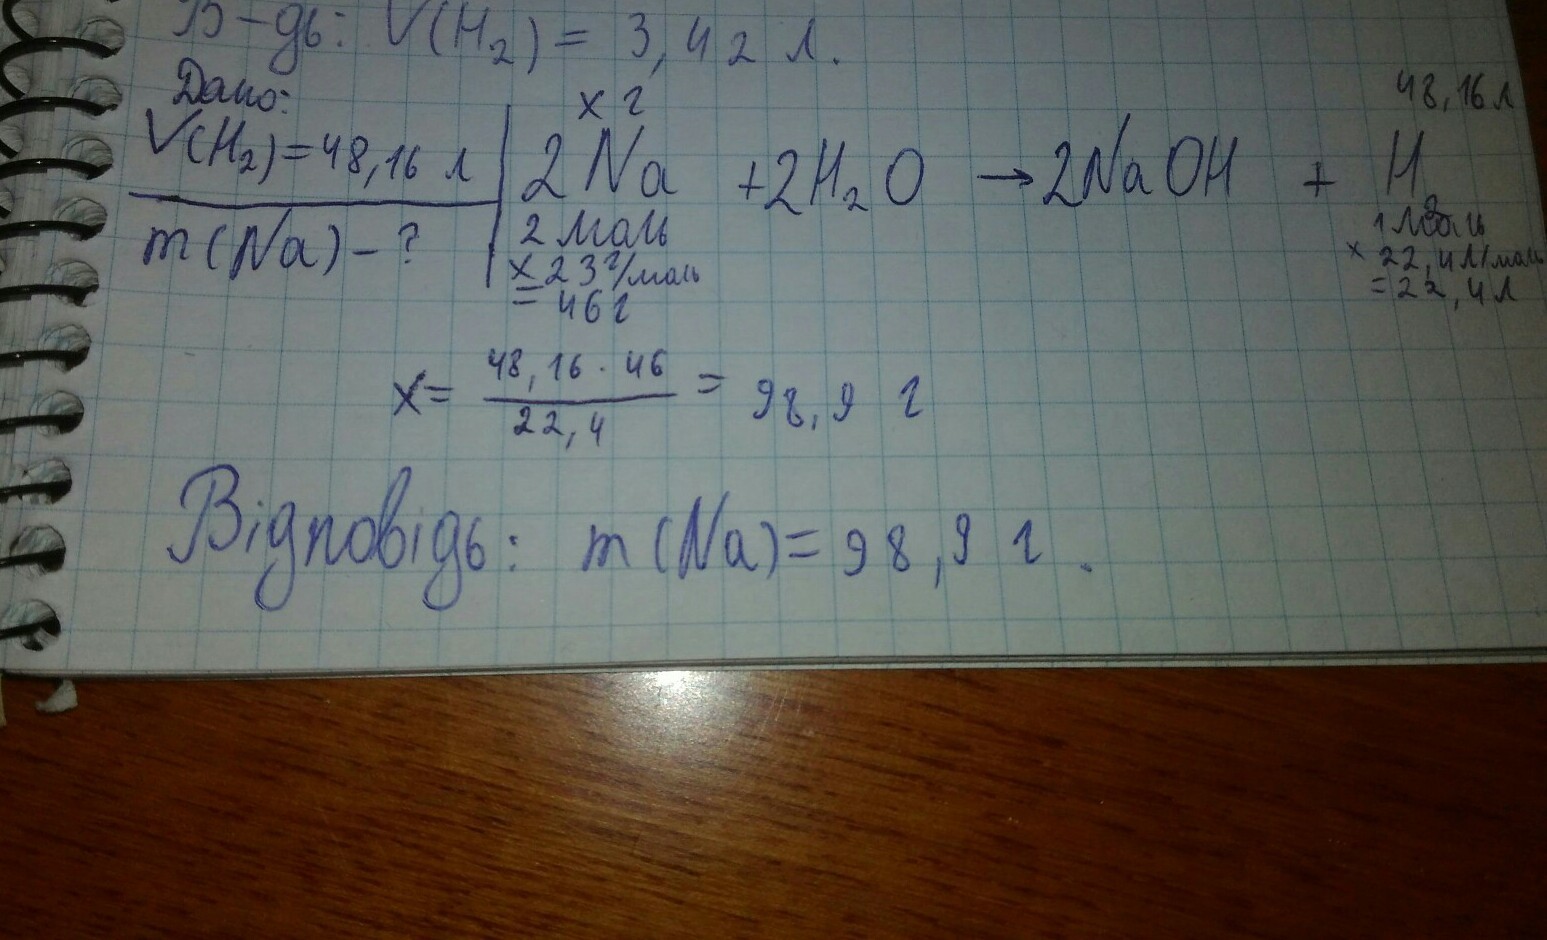 В-дь: V(H2) = 3,42 л.
Дано:
V(H2)=48,16 л
m(Na) - ?
x г
48,16 л
2Na + 2H2O → 2NaOH + H2
2 моль
x 23 г/моль
= 46 г
1 моль
x 22,4 л/моль
= 22,4 л
x = 48,16 · 46 / 22,4 = 98,9 г
Відповідь: m(Na) = 98,9 г.